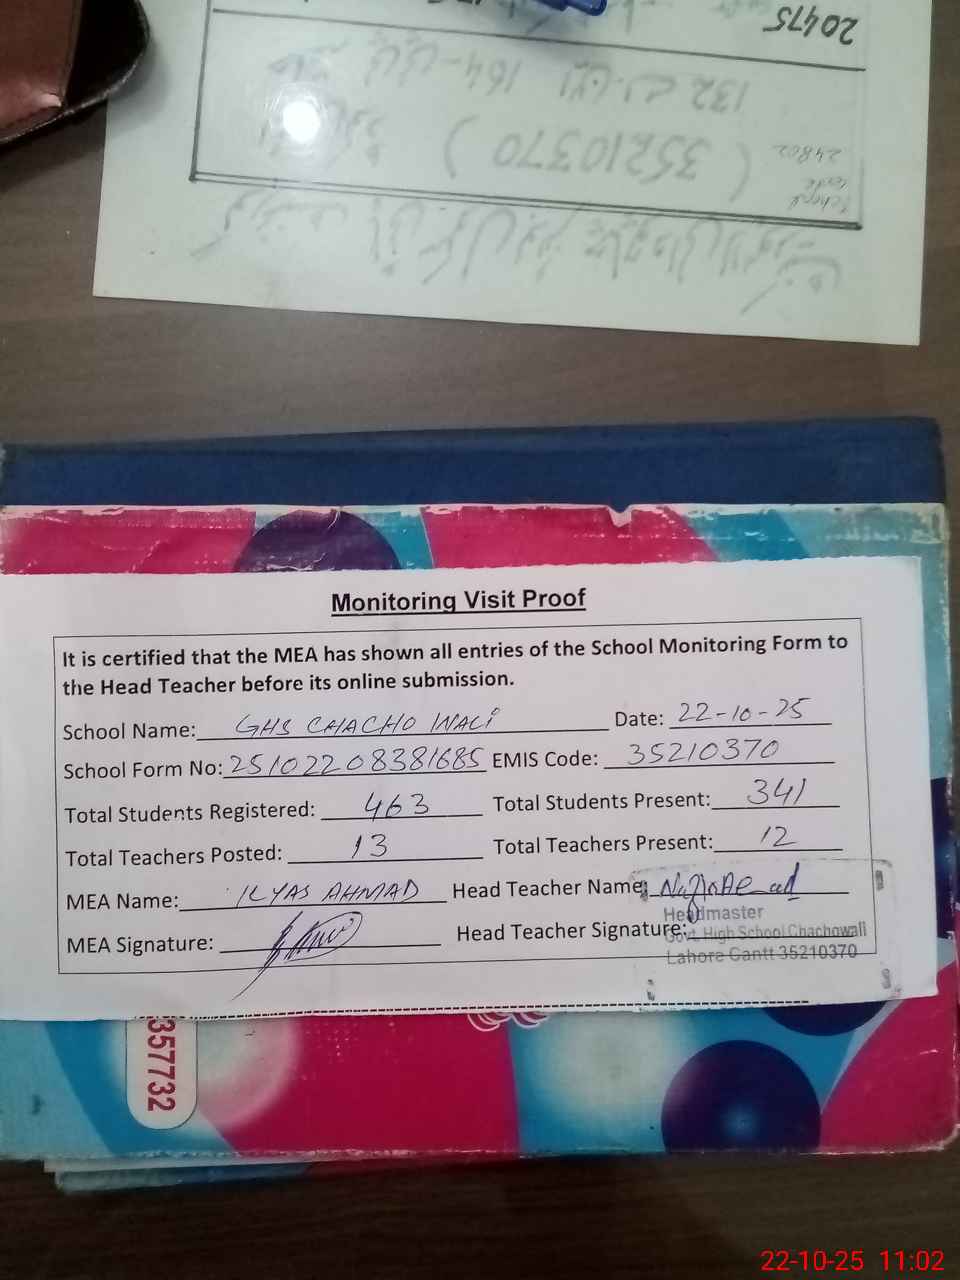 20475
132 164
(35210370)
School Code 24802
Monitoring Visit Proof
It is certified that the MEA has shown all entries of the School Monitoring Form to
the Head Teacher before its online submission.
School Name: GHS CHACHO WALI Date: 22-10-25
School Form No: 25102208381685 EMIS Code: 35210370
Total Students Registered: 463 Total Students Present: 341
Total Teachers Posted: 13 Total Teachers Present: 12
MEA Name: ILYAS AHMAD Head Teacher Name:
MEA Signature: Head Teacher Signature:
Headmaster
Govt. High School Chachowali
Lahore Cantt 35210370
357732
22-10-25 11:02